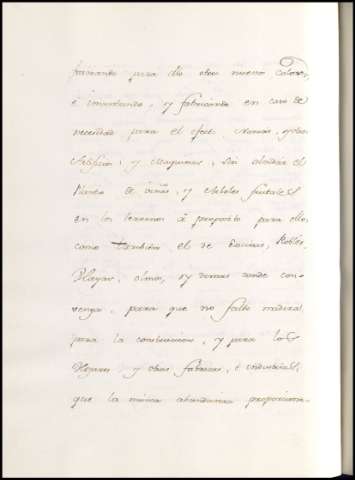 para ello otro nuevo
é inventando, y fabricando en caso de
necesidad para el efecto y otros
y Maquinas, sin olvidar el
Planto de viñas, y Arboles frutales
en los terrenos á proposito para ello,
como tambien el de Encinas, Robles,
Olmos, y demas donde con-
venga, para que no falte madera
para la construccion, y para los
y otras fabricas, é industrias,
que la misma abundancia proporciona-